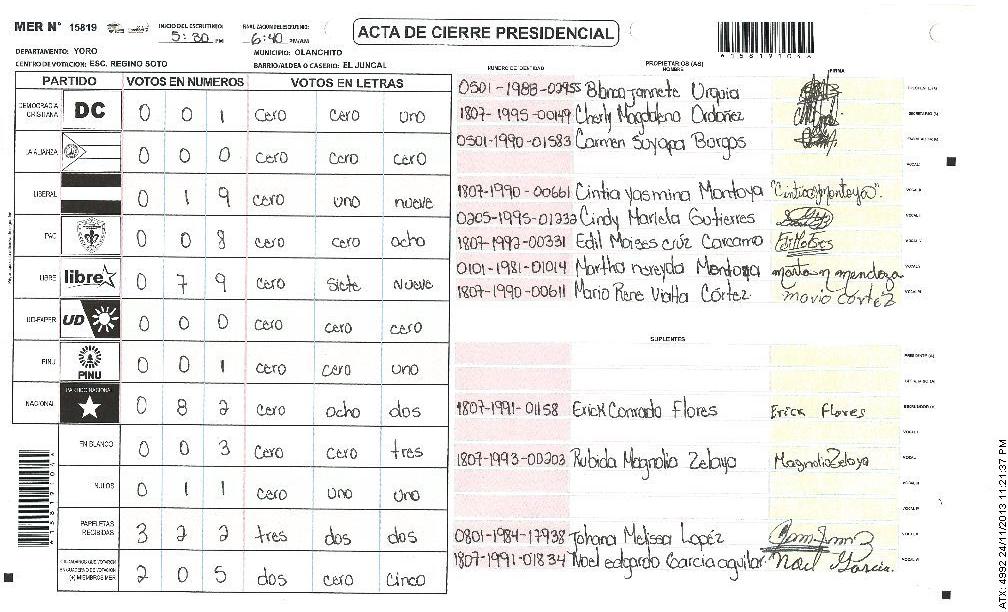 MER N° 15819
INICIO DEL ESCRUTINIO: 5:30 PM
FINALIZACION DEL ESCRUTINIO: 6:40 PM
ACTA DE CIERRE PRESIDENCIAL
DEPARTAMENTO: YORO
MUNICIPIO: OLANCHITO
CENTRO DE VOTACION: ESC. REGINO SOTO
BARRIO/ALDEA O CASERIO: EL JUNCAL
PARTIDO VOTOS EN NUMEROS VOTOS EN LETRAS
DEMOCRACIA CRISTIANA DC 0 0 1 cero cero uno
LA ALIANZA 0 0 0 cero cero cero
LIBERAL 0 1 9 cero uno nueve
PAC 0 0 8 cero cero ocho
LIBRE libre 0 7 9 cero siete nueve
UD-FAPER UD 0 0 0 cero cero cero
PINU PINU 0 0 1 cero cero uno
NACIONAL PARTIDO NACIONAL 0 8 2 cero ocho dos
EN BLANCO 0 0 3 cero cero tres
NULOS 0 1 1 cero uno uno
PAPELETAS RECIBIDAS 3 2 2 tres dos dos
CIUDADANOS QUE VOTARON EN CUADERNO DE VOTACION (+) MIEMBROS MER 2 0 5 dos cero cinco
NUMERO DE IDENTIDAD PROPIETARIOS (AS) NOMBRE FIRMA
0501-1988-02955 Blanca Jannete Urquia
1807-1995-00149 Cherly Magdalena Ordoñez
0501-1990-01583 Carmen Suyapa Burgos
1807-1990-00661 Cintia Yasmina Montoya "Cintia y montoya".
0205-1995-01232 Cindy Mariela Gutierres
1807-1992-00331 Edil Moises cruz Carcamo
0101-1981-01014 Martha nereyda Montoya
1807-1990-00611 Mario Rene Vialta Córtez mario córtez
SUPLENTES
1807-1991-01158 Erick Conrado Flores Erick Flores
1807-1993-00203 Rubida Magnolia Zelaya Magnolia Zelaya
0801-1984-17938 Johana Melissa Lopéz
1807-1991-01834 Noel edgardo Garcia aguilar. Noel Garcia.
ATX: 4992 24/11/2013 11:21:37 PM